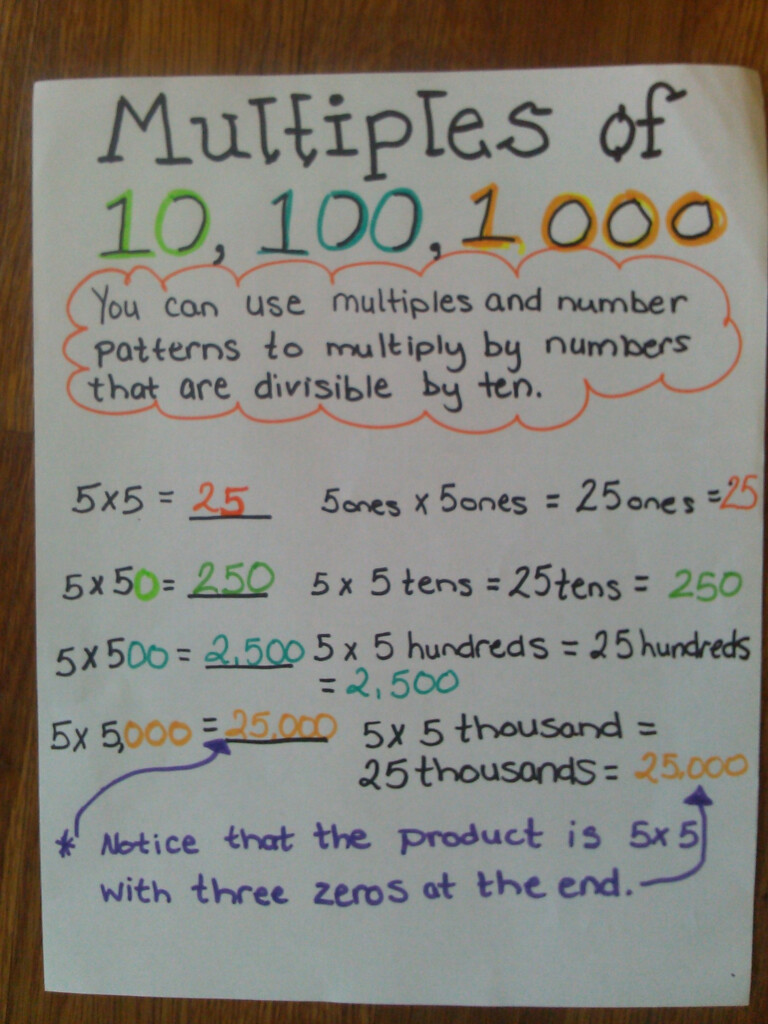 Multiples of
10, 100, 1,000
You can use multiples and number
patterns to multiply by numbers
that are divisible by ten.
5x5 = 25 5ones x 5ones = 25ones =25
5x50= 250 5 x 5 tens = 25tens = 250
5x500 = 2,500 5 x 5 hundreds = 25hundreds
= 2,500
5x 5,000 = 25,000 5x 5 thousand =
25 thousands= 25,000
* Notice that the product is 5x5
with three zeros at the end.